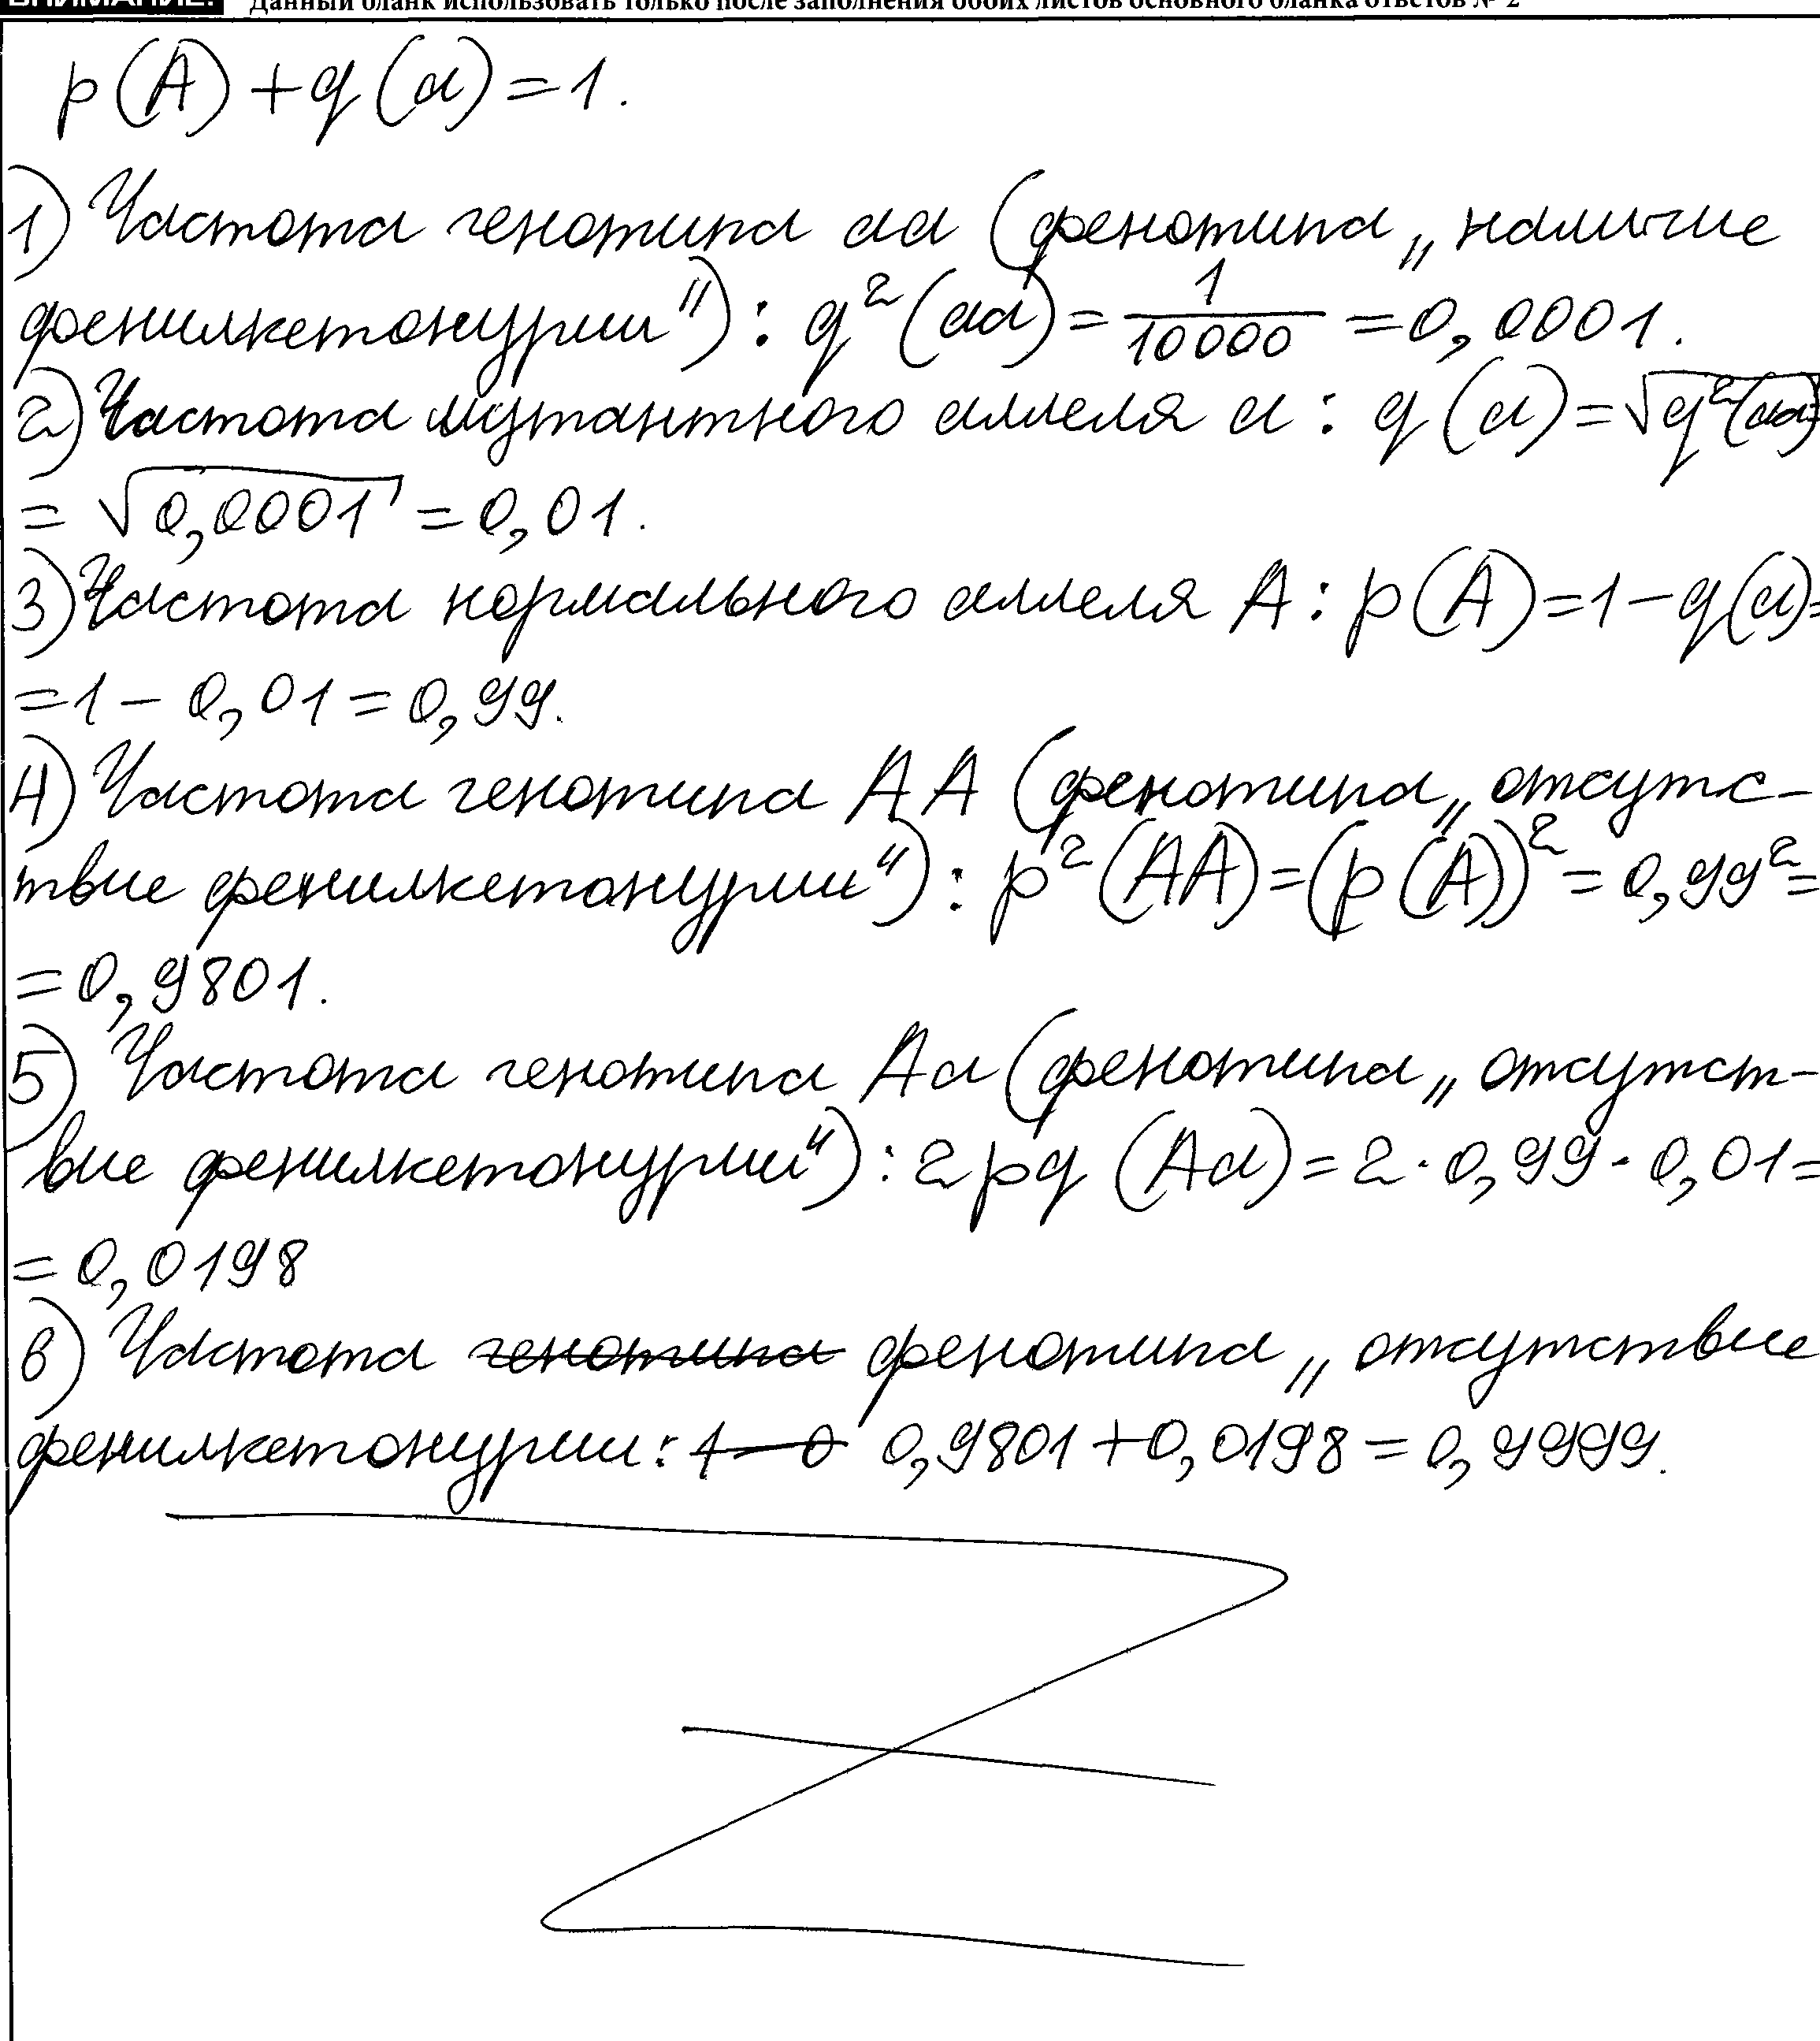 ВНИМАНИЕ! Данный бланк использовать только после заполнения обоих листов основного бланка ответов № 2
p(A) + q(a) = 1.
1) Частота генотипа aa (фенотипа „наличие
фенилкетонурии"): q²(aa) = 1/10000 = 0,0001.
2) Частота мутантного аллеля a: q(a) = √q²(aa)
= √0,0001 = 0,01.
3) Частота нормального аллеля A: p(A) = 1 – q(a) =
= 1 – 0,01 = 0,99.
4) Частота генотипа AA (фенотипа „отсутс-
твие фенилкетонурии"): p²(AA) = (p(A))² = 0,99² =
= 0,9801.
5) Частота генотипа Aa (фенотипа „отсутст-
вие фенилкетонурии"): 2pq (Aa) = 2 · 0,99 · 0,01 =
= 0,0198
6) Частота генотипа фенотипа „отсутствие
фенилкетонурии: 1–0 0,9801 + 0,0198 = 0,9999.